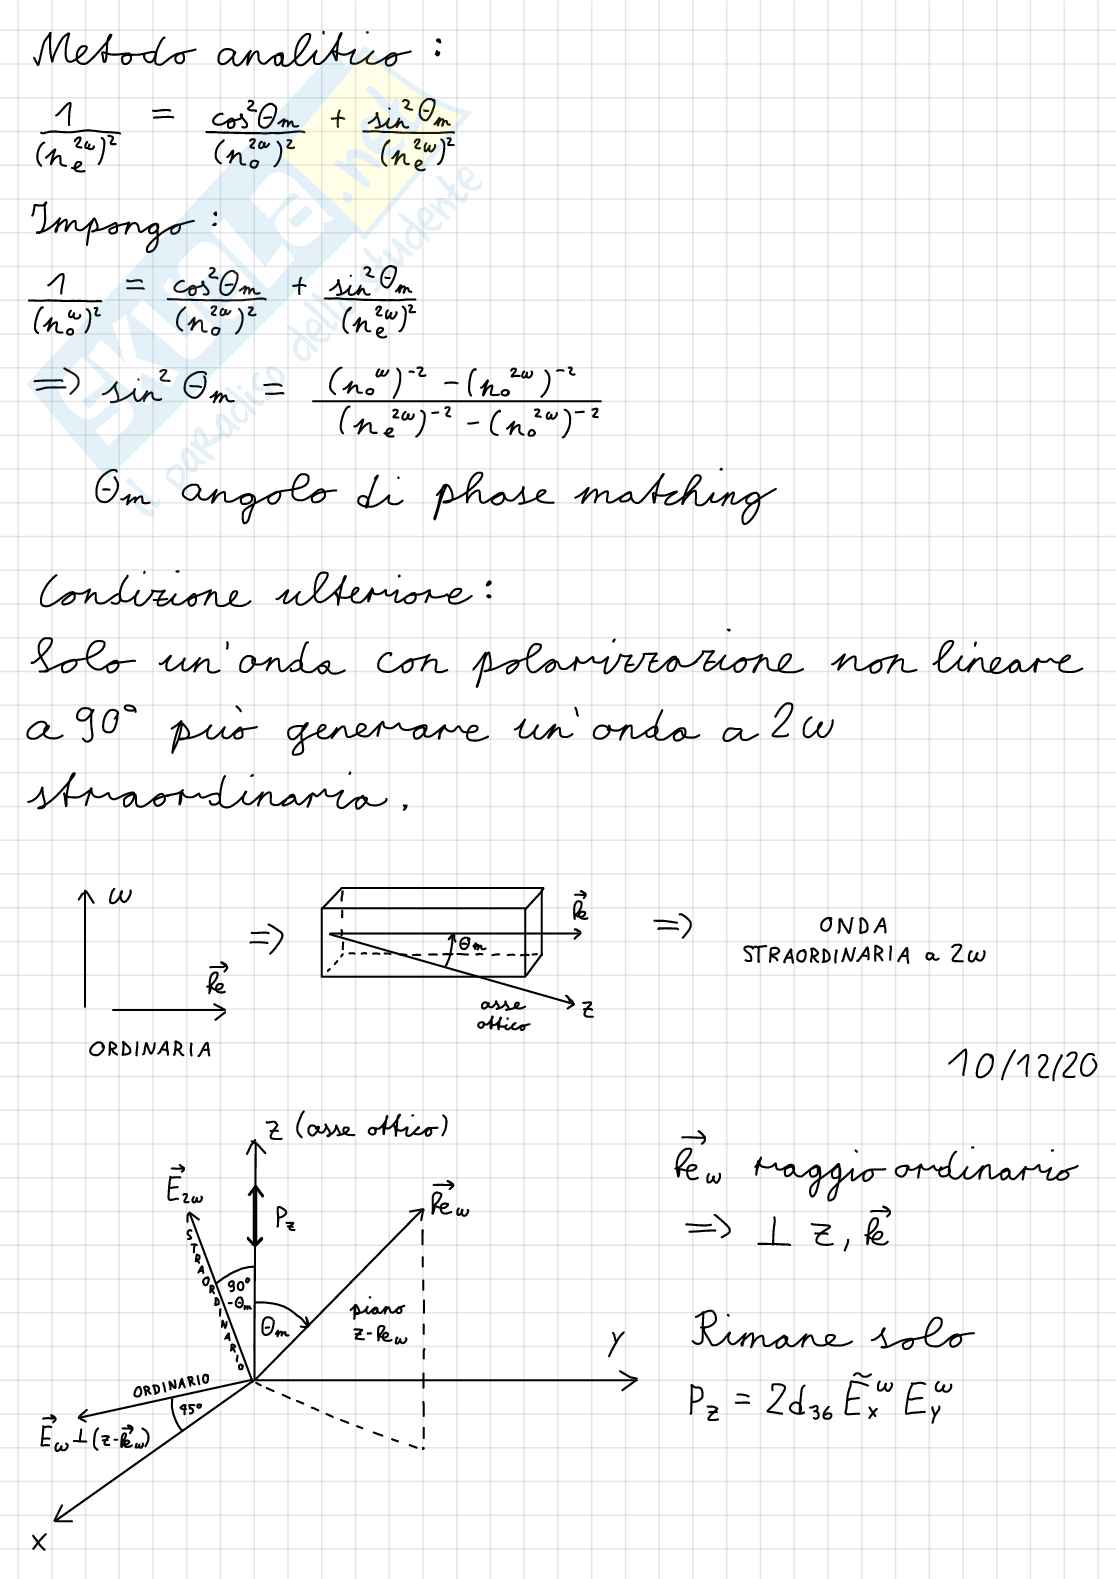 Metodo analitico :
1/(n_e^{2ω})² = cos²θ_m/(n_o^{2ω})² + sin²θ_m/(n_e^{2ω})²
Impongo :
1/(n_o^ω)² = cos²θ_m/(n_o^{2ω})² + sin²θ_m/(n_e^{2ω})²
=> sin²θ_m = ((n_o^ω)^{-2} - (n_o^{2ω})^{-2})/((n_e^{2ω})^{-2} - (n_o^{2ω})^{-2})
θ_m angolo di phase matching
Condizione ulteriore :
Solo un'onda con polarizzazione non lineare
a 90° può generare un'onda a 2ω
straordinaria.
ω
k⃗
ORDINARIA
=>
θ_m
k⃗
asse
ottico
z
=>
ONDA
STRAORDINARIA a 2ω
10/12/20
z (asse ottico)
E⃗_{2ω}
STRAORDINARIO
P_z
k⃗_ω
90°
-θ_m
θ_m
piano
z-k_ω
y
ORDINARIO
45°
E⃗_ω ⊥ (z-k⃗_ω)
x
k⃗_ω raggio ordinario
=> ⊥ z, k⃗
Rimane solo
P_z = 2d_{36} Ẽ_x^ω E_y^ω
SKUOLA.net
il paradiso dello studente